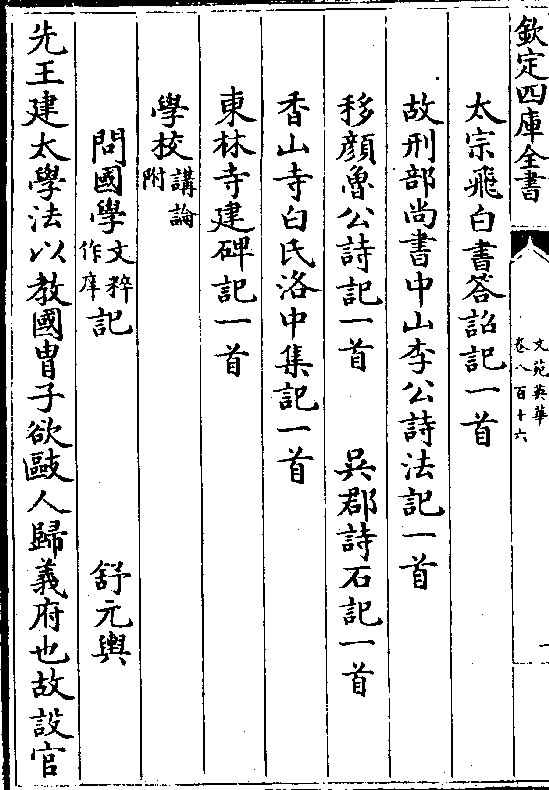 欽定四庫全書
文苑英華
卷八百十六
一
太宗飛白書答詔記一首
故刑部尚書中山李公詩法記一首
移顔魯公詩記一首　吳郡詩石記一首
香山寺白氏洛中集記一首
東林寺建碑記一首
學校講論附
問國學文粹作庠記　舒元輿
先王建太學法以教國胄子欲敺人歸義府也故設官